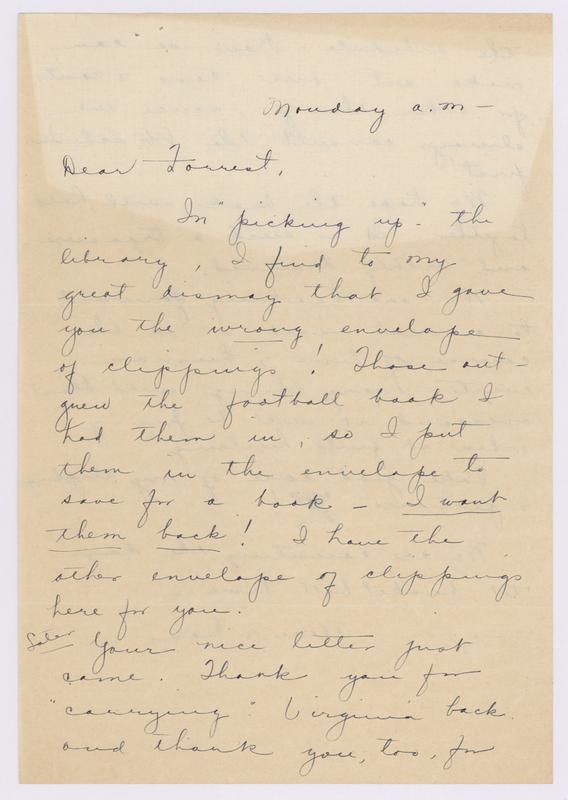 Monday a.m —
Dear Forrest,
In "picking up" the
library, I find to my
great dismay that I gave
you the wrong envelope
of clippings! Those out-
grew the football book I
had them in, so I put
them in the envelope to
save for a book — I want
them back! I have the
other envelope of clippings
here for you.
Later Your nice letter just
came. Thank you for
"carrying" Virginia back
and thank you, too, for